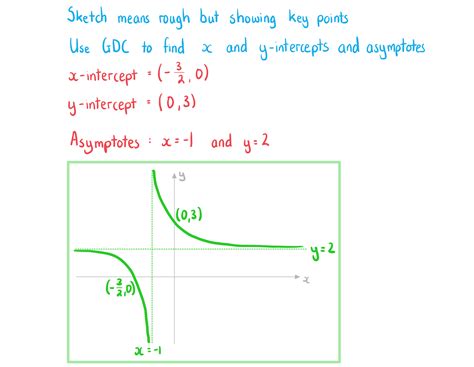 Sketch means rough but showing key points
Use GDC to find x and y-intercepts and asymptotes
x-intercept = (-3/2, 0)
y-intercept = (0, 3)
Asymptotes : x=-1 and y=2
y
(0,3)
y=2
x
(-3/2, 0)
x=-1